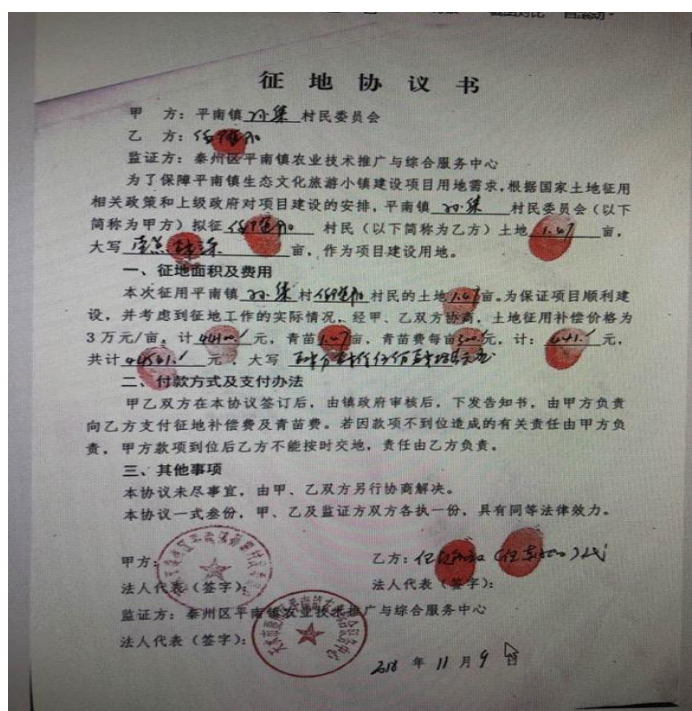 征 地 协 议 书
甲 方：平南镇 孙集 村民委员会
乙 方：
监证方：秦州区平南镇农业技术推广与综合服务中心
为了保障平南镇生态文化旅游小镇建设项目用地需求，根据国家土地征用
相关政策和上级政府对项目建设的安排，平南镇 孙集 村民委员会（以下
简称为甲方）拟征 村民（以下简称为乙方）土地 1.47 亩，
大写 亩，作为项目建设用地。
一、征地面积及费用
本次征用平南镇 孙集 村 村民的土地 1.47 亩。为保证项目顺利建
设，并考虑到征地工作的实际情况，经甲、乙双方协商，土地征用补偿价格为
3 万元/亩，计 44100.- 元，青苗 1.47 亩，青苗费每亩 300.- 元，计： 441.- 元，
共计 44541.- 元，大写
二、付款方式及支付办法
甲乙双方在本协议签订后，由镇政府审核后，下发告知书，由甲方负责
向乙方支付征地补偿费及青苗费。若因款项不到位造成的有关责任由甲方负
责，甲方款项到位后乙方不能按时交地，责任由乙方负责。
三、其他事项
本协议未尽事宜，由甲、乙双方另行协商解决。
本协议一式叁份，甲、乙及监证方双方各执一份，具有同等法律效力。
甲方： 乙方：
法人代表（签字）： 法人代表（签字）：
监证方：秦州区平南镇农业技术推广与综合服务中心
法人代表（签字）：
2018 年 11 月 9 日